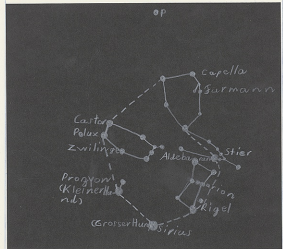 P
Capella
Furmann
Castor
Polux
Zwilling
Aldebaran
Stier
Progyom
(Kleinerhu
nd)
Orion
Rigel
(GrosserHund)
Sirius